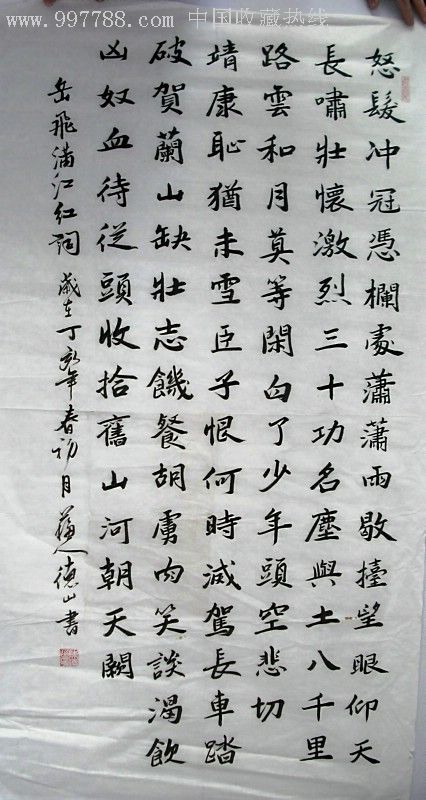 www.997788.com 中国收藏热线
怒髮冲冠憑欄處瀟瀟雨歇擡望眼仰天
長嘯壯懷激烈三十功名塵與土八千里
路雲和月莫等閑白了少年頭空悲切
靖康恥猶未雪臣子恨何時滅駕長車踏
破賀蘭山缺壯志饑餐胡虜肉笑談渴飲
凶奴血待從頭收拾舊山河朝天闕
岳飛滿江紅詞歲在丁亥年春初月德山書